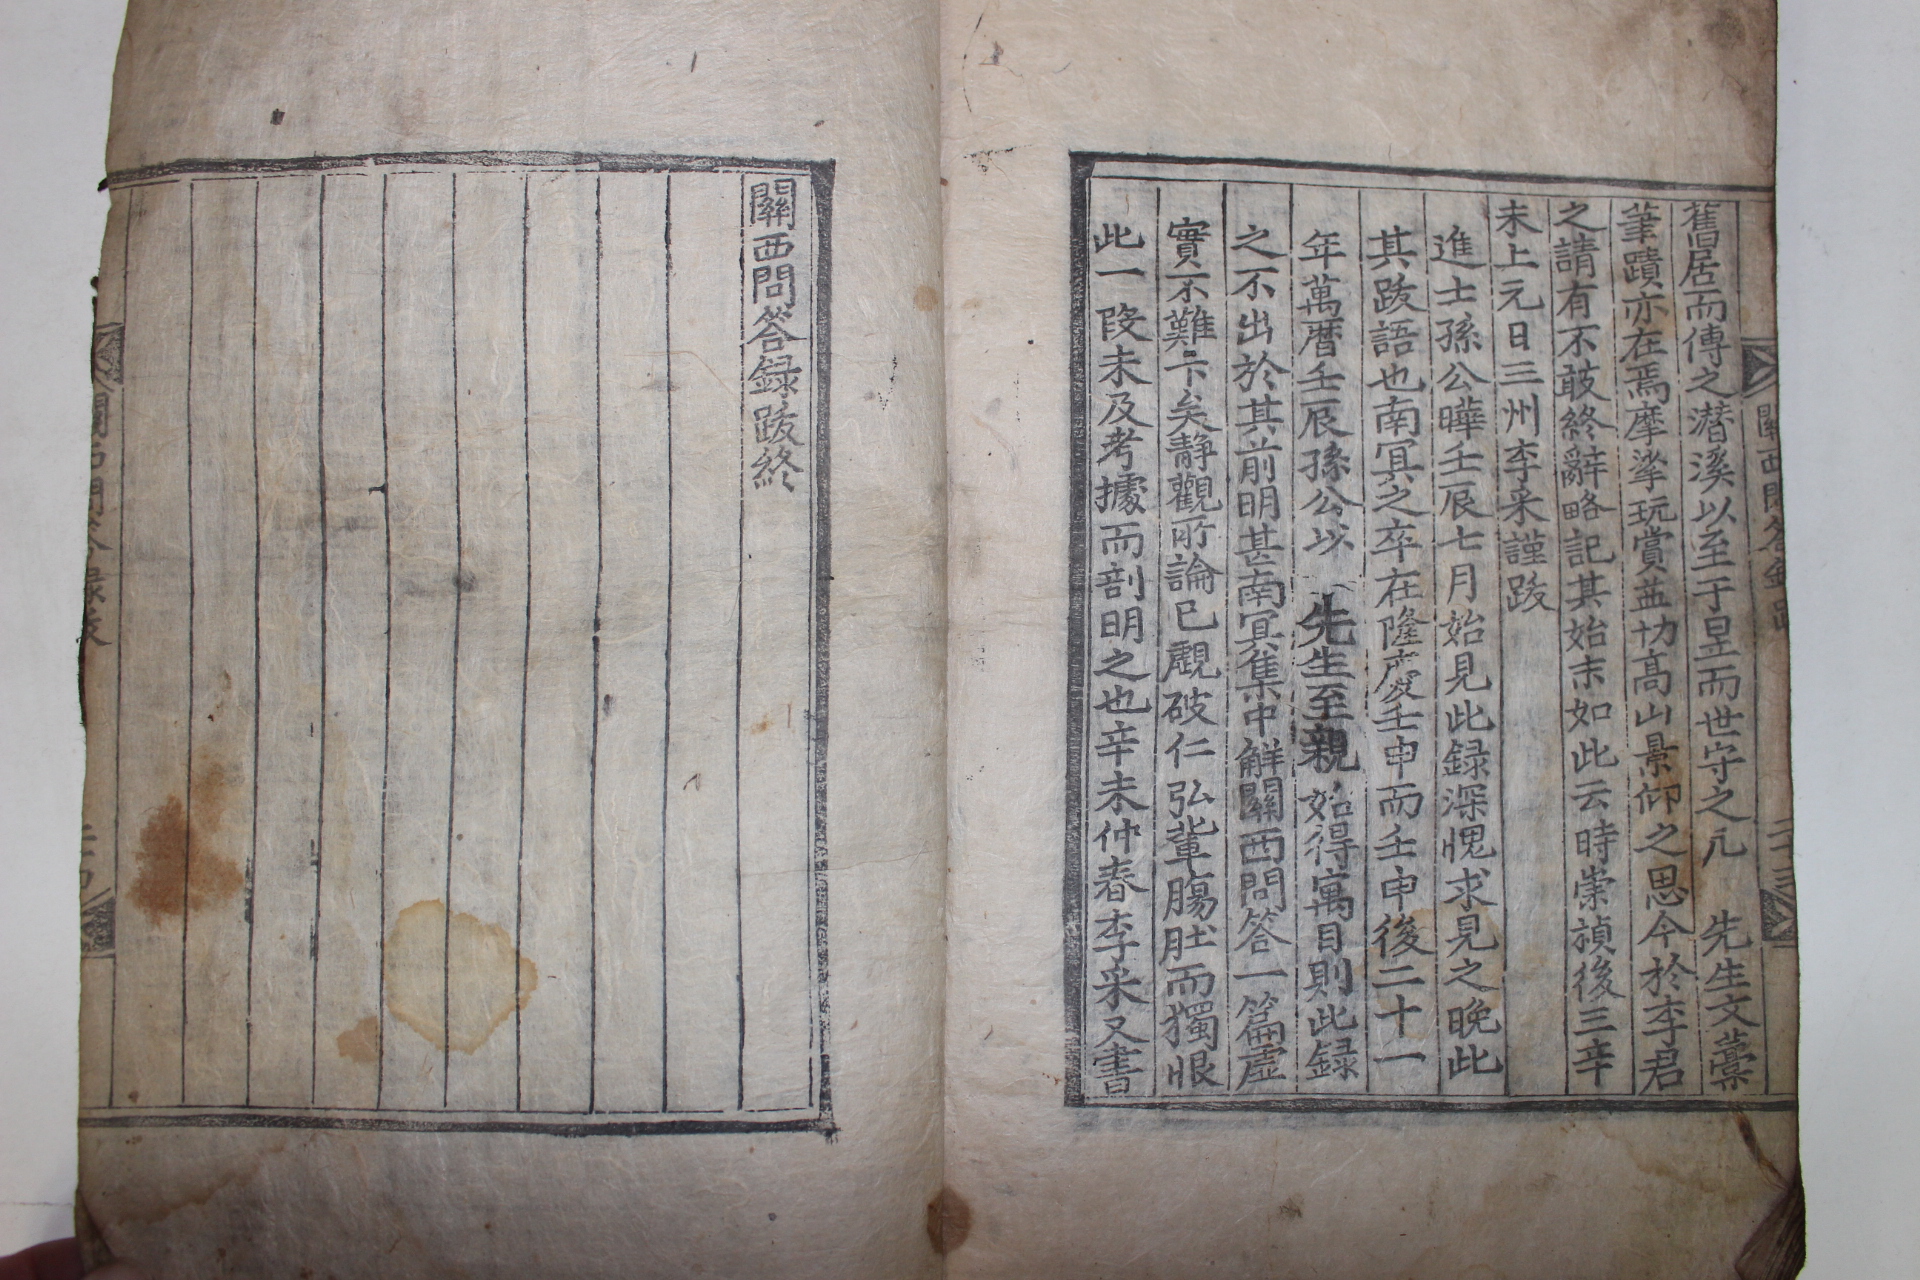 舊居而傳之潜溪以至于昱而世守之凡 先生文藁
筆蹟亦在焉摩挲玩賞益切高山景仰之思今於李君
之請有不敢終辭略記其始末如此云時崇禎後三辛
未上元日三州李采謹跋
進士孫公曄壬辰七月始見此録深愧求見之晚此
其跋語也南冥之卒在隆慶壬申而壬申後二十一
年萬曆壬辰孫公以 先生至親始得寓目則此録
之不出於其前明甚南冥集中解關西問答一篇虛
實不難卞矣靜觀所論已覷破仁弘輩膓肚而獨恨
此一段未及考據而剖明之也辛未仲春李采又書
關西問答録跋
二十三
關西問答録跋終
關西問答録跋